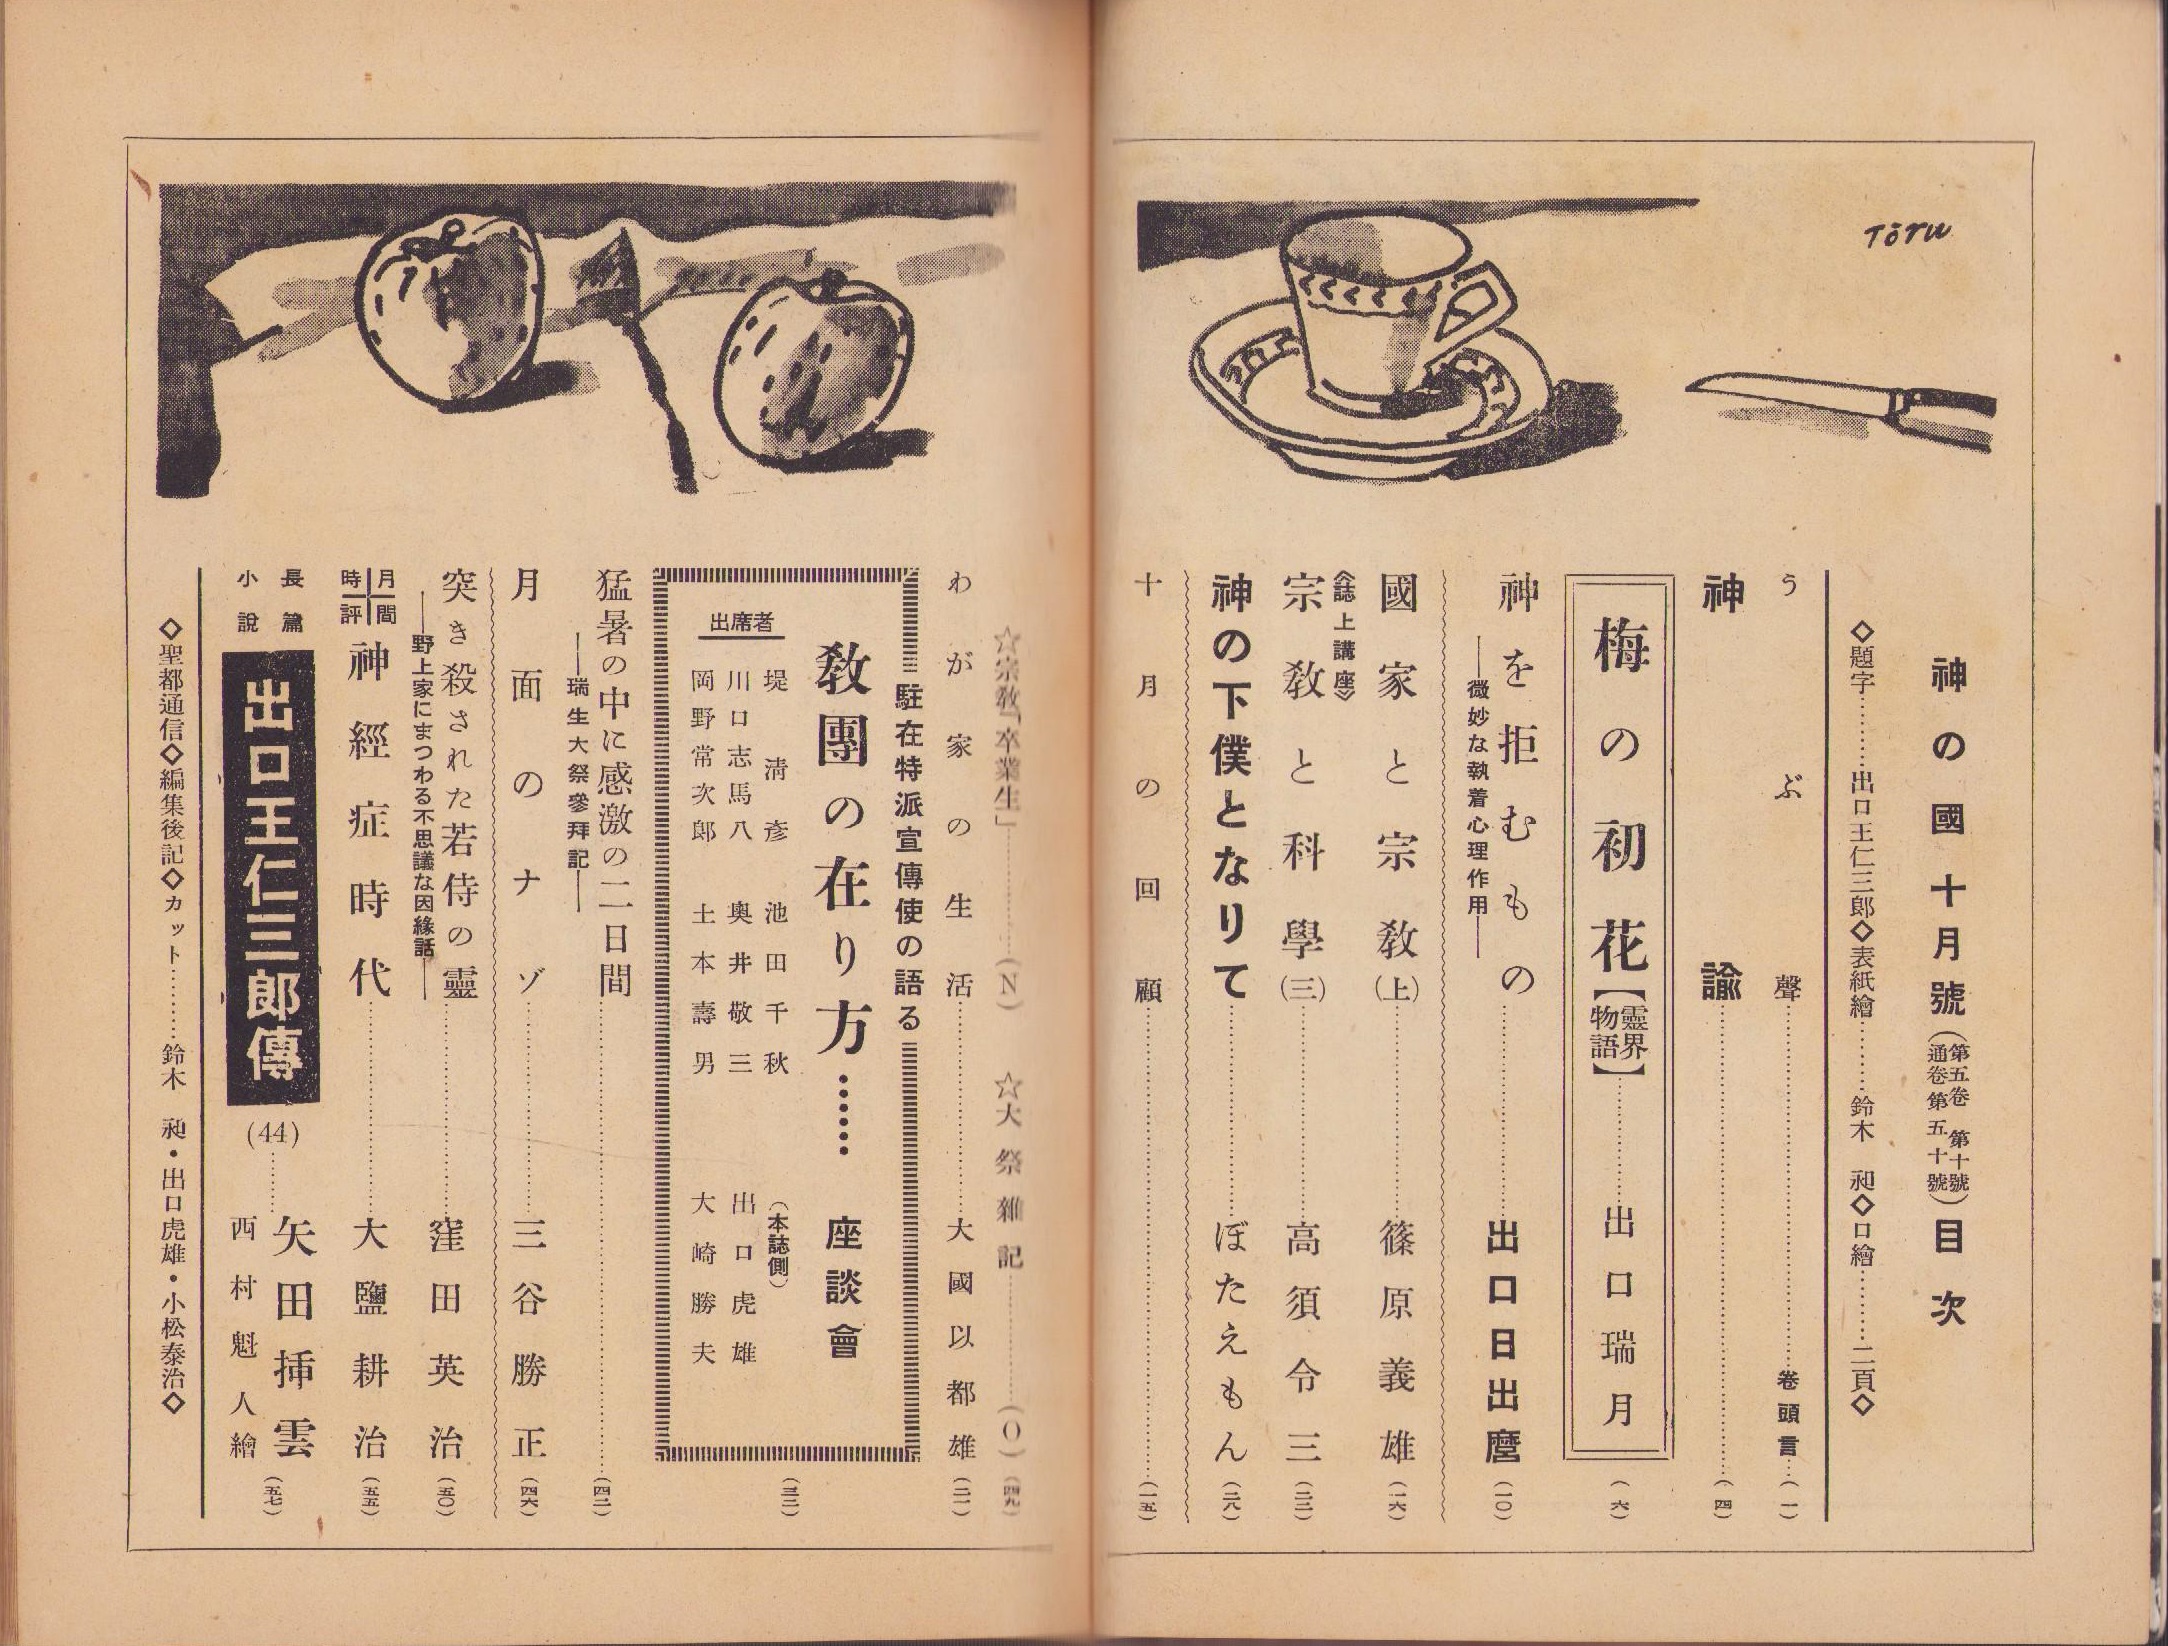 Tōru
神の國 十月號(第五卷 第十號 通卷第五十號)目次
◇題字………出口王仁三郎◇表紙繪………鈴木 昶◇口繪………二頁◇
うぶ聲………卷頭言…(一)
神諭………(四)
梅の初花【靈界物語】………出口瑞月(六)
神を拒むもの………出口日出麿(一〇)
――微妙な執着心理作用――
國家と宗教(上)………篠原義雄(一六)
《誌上講座》
宗教と科學(三)………高須令三(二二)
神の下僕となりて………ぼたえもん(二八)
十月の回顧………(一五)
☆宗教「卒業生」………(N) ☆大祭雜記………(O)(四九)
わが家の生活………大國以都雄(二一)
駐在特派宣傳使の語る
教團の在り方……座談會(三二)
出席者
堤清彦 池田千秋 (本誌側)
川口志馬八 奥井敬三 出口虎雄
岡野常次郎 土本壽男 大崎勝夫
猛暑の中に感激の二日間………(四二)
――瑞生大祭參拜記――
月面のナゾ………三谷勝正(四六)
突き殺された若侍の靈………窪田英治(五〇)
――野上家にまつわる不思議な因緣話――
月間時評 神經症時代………大鹽耕治(五五)
長篇小說 出口王仁三郎傳(44)………矢田挿雲(五七)
西村魁人繪
◇聖都通信◇編集後記◇カット………鈴木 昶・出口虎雄・小松泰治◇